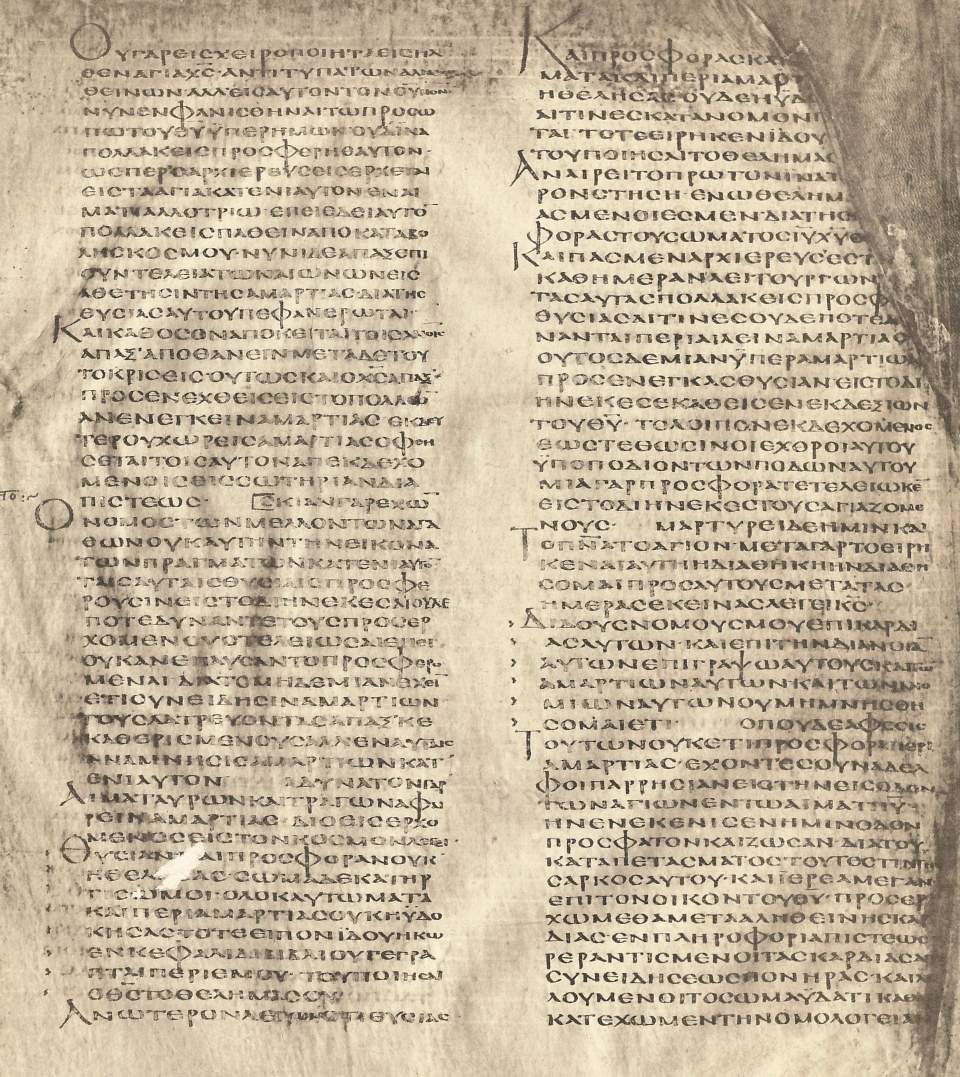 ΟΥΓΑΡΕΙΣΧΕΙΡΟΠΟΙΗΤΑΕΙΣΗΛ
ΘΕΝΑΓΙΑΧΣ·ΑΝΤΙΤΥΠΑΤΩΝΑΛΗ
ΘΕΙΝΩΝΑΛΛΕΙΣΑΥΤΟΝΤΟΝΟΥΝΟΝ
ΝΥΝΕΝΦΑΝΙΣΘΗΝΑΙΤΩΠΡΟΣΩ
ΠΩΤΟΥΘΥΫΠΕΡΗΜΩΝΟΥΔΙΝΑ
ΠΟΛΛΑΚΕΙΣΠΡΟΣΦΕΡΗΕΑΥΤΟΝ·
ΩΣΠΕΡΟΑΡΧΙΕΡΕΥΣΕΙΣΕΡΧΕΤΑΙ
ΕΙΣΤΑΑΓΙΑΚΑΤΕΝΙΑΥΤΟΝΕΝΑΙ
ΜΑΤΙΑΛΛΟΤΡΙΩ·ΕΠΕΙΕΔΕΙΑΥΤΟ̅
ΠΟΛΛΑΚΕΙΣΠΑΘΕΙΝΑΠΟΚΑΤΑΒΟ
ΛΗΣΚΟΣΜΟΥ·ΝΥΝΙΔΕΑΠΑΞΕΠΙ
ΣΥΝΤΕΛΕΙΑΤΩΝΑΙΩΝΩΝΕΙΣ
ΑΘΕΤΗΣΙΝΤΗΣΑΜΑΡΤΙΑΣΔΙΑΤΗΣ
ΘΥΣΙΑΣΑΥΤΟΥΠΕΦΑΝΕΡΩΤΑΙ·
ΚΑΙΚΑΘΟΣΟΝΑΠΟΚΕΙΤΑΙΤΟΙΣΑΝΟΙΣ
ΑΠΑΞ'ΑΠΟΘΑΝΕΙΝΜΕΤΑΔΕΤΟΥ
ΤΟΚΡΙΣΕΙΣΟΥΤΩΣΚΑΙΟΧΣΑΠΑΞ·
ΠΡΟΣΕΝΕΧΘΕΙΣΕΙΣΤΟΠΟΛΛΩ̅
ΑΝΕΝΕΓΚΕΙΝΑΜΑΡΤΙΑΣ ΕΚΔΕΥ
ΤΕΡΟΥΧΩΡΕΙΣΑΜΑΡΤΙΑΣΟΦΘΗ
ΣΕΤΑΙΤΟΙΣΑΥΤΟΝΑΠΕΚΔΕΧΟ
ΜΕΝΟΙΣΕΙΣΣΩΤΗΡΙΑΝΔΙΑ
ΠΙΣΤΕΩΣ· ΣΚΙΑΝΓΑΡΕΧΩ̅
ΟΝΟΜΟΣΤΩΝΜΕΛΛΟΝΤΩΝΑΓΑ
ΘΩΝΟΥΚΑΥΤΗΝΤΗΝΕΙΚΟΝΑ
ΤΩΝΠΡΑΓΜΑΤΩΝΚΑΤΕΝΙΑΥΤΟ̅
ΤΑΙΣΑΥΤΑΙΣΘΥΣΙΑΙΣΠΡΟΣΦΕ
ΡΟΥΣΙΝΕΙΣΤΟΔΙΗΝΕΚΕΣΑΙΟΥΔΕ
ΠΟΤΕΔΥΝΑΝΤΕΤΟΥΣΠΡΟΣΕΡ
ΧΟΜΕΝΟΥΣΤΕΛΕΙΩΣΑΙΕΠΕΙ
ΟΥΚΑΝΕΠΑΥΣΑΝΤΟΠΡΟΣΦΕΡΟ
ΜΕΝΑΙ·ΔΙΑΤΟΜΗΔΕΜΙΑΝΕΧΕΙ̅
ΕΤΙΣΥΝΕΙΔΗΣΙΝΑΜΑΡΤΙΩΝ
ΤΟΥΣΛΑΤΡΕΥΟΝΤΑΣΑΠΑΞ'ΚΕ
ΚΑΘΕΡΙΣΜΕΝΟΥΣΑΛΛΕΝΑΥΤΑΙΣ
ΑΝΑΜΝΗΣΙΣΑΜΑΡΤΙΩΝΚΑΤ
ΕΝΙΑΥΤΟΝ ΑΔΥΝΑΤΟΝΓΑΡ
ΑΙΜΑΤΑΥΡΩΝΚΑΙΤΡΑΓΩΝΑΦΑΙ
ΡΕΙΝΑΜΑΡΤΙΑΣ·ΔΙΟΕΙΣΕΡΧΟ
ΜΕΝΟΣΕΙΣΤΟΝΚΟΣΜΟΝΛΕΓΕΙ·
ΘΥΣΙΑΝΚΑΙΠΡΟΣΦΟΡΑΝΟΥΚ
ΗΘΕΛΗΣΑΣ·ΣΩΜΑΔΕΚΑΤΗΡ
ΤΙΣΩΜΟΙ·ΟΛΟΚΑΥΤΩΜΑΤΑ
ΚΑΙΠΕΡΙΑΜΑΡΤΙΑΣΟΥΚΗΫΔΟ
ΚΗΣΑΣΤΟΤΕΕΙΠΟΝΪΔΟΥΗΚΩ
ΕΝΚΕΦΑΛΙΔΙΒΙΒΛΙΟΥΓΕΓΡΑ
ΠΤΑΙΠΕΡΙΕΜΟΥ·ΤΟΥΠΟΙΗΣΑΙ
ΟΘΣΤΟΘΕΛΗΜΑΣΟΥ
ΑΝΩΤΕΡΟΝΛΕΓΩΝΟΤΙΘΥΣΙΑΣ
ΚΑΙΠΡΟΣΦΟΡΑΣΚΑΙ
ΜΑΤΑΚΑΙΠΕΡΙΑΜΑΡΤ
ΗΘΕΛΗΣΑΣ·ΟΥΔΕΗΫΔΟ
ΑΙΤΙΝΕΣΚΑΤΑΝΟΜΟΝ
ΤΑΙ·ΤΟΤΕΕΙΡΗΚΕΝΪΔΟΥ
ΤΟΥΠΟΙΗΣΑΙΤΟΘΕΛΗΜΑΣ
ΑΝΑΙΡΕΙΤΟΠΡΩΤΟΝΙΝΑΤ
ΡΟΝΣΤΗΣΗ·ΕΝΩΘΕΛΗΜ
ΑΣΜΕΝΟΙΕΣΜΕΝΔΙΑΤΗΣ
ΦΟΡΑΣΤΟΥΣΩΜΑΤΟΣΙΥΧΥ
ΚΑΙΠΑΣΜΕΝΑΡΧΙΕΡΕΥΣΕΣΤ
ΚΑΘΗΜΕΡΑΝΛΕΙΤΟΥΡΓΩΝ
ΤΑΣΑΥΤΑΣΠΟΛΛΑΚΕΙΣΠΡΟΣΦ
ΘΥΣΙΑΣΑΙΤΙΝΕΣΟΥΔΕΠΟΤΕΔ
ΝΑΝΤΑΙΠΕΡΙΑΙΛΕΙΝΑΜΑΡΤΙΑΣ
ΟΥΤΟΣΔΕΜΙΑΝΫΠΕΡΑΜΑΡΤΙΩΝ
ΠΡΟΣΕΝΕΓΚΑΣΘΥΣΙΑΝΕΙΣΤΟΔΙ
ΗΝΕΚΕΣΕΚΑΘΕΙΣΕΝΕΚΔΕΞΙΩΝ
ΤΟΥΘΥ·ΤΟΛΟΙΠΟΝΕΚΔΕΧΟΜΕΝΟΣ
ΕΩΣΤΕΘΩΣΙΝΟΙΕΧΘΡΟΙΑΥΤΟΥ
ΫΠΟΠΟΔΙΟΝΤΩΝΠΟΔΩΝΑΥΤΟΥ
ΜΙΑΓΑΡΠΡΟΣΦΟΡΑΤΕΤΕΛΕΙΩΚΕ̅
ΕΙΣΤΟΔΙΗΝΕΚΕΣΤΟΥΣΑΓΙΑΖΟΜΕ
ΝΟΥΣ· ΜΑΡΤΥΡΕΙΔΕΗΜΙΝΚΑΙ
ΤΟΠΝΑΤΟΑΓΙΟΝ·ΜΕΤΑΓΑΡΤΟΕΙΡΗ
ΚΕΝΑΙΑΥΤΗΗΔΙΑΘΗΚΗΗΝΔΙΑΘΗ
ΣΟΜΑΙΠΡΟΣΑΥΤΟΥΣΜΕΤΑΤΑΣ
ΗΜΕΡΑΣΕΚΕΙΝΑΣΛΕΓΕΙΚΣ·
ΔΙΔΟΥΣΝΟΜΟΥΣΜΟΥΕΠΙΚΑΡΔΙ
ΑΣΑΥΤΩΝ·ΚΑΙΕΠΙΤΗΝΔΙΑΝΟΙΑ̅
ΑΥΤΩΝΕΠΙΓΡΑΨΩΑΥΤΟΥΣΚΑΙΤΩ̅
ΑΜΑΡΤΙΩΝΑΥΤΩΝ·ΚΑΙΤΩΝΑΝΟ
ΜΙΩΝΑΥΤΩΝΟΥΜΗΜΝΗΣΘΗ
ΣΟΜΑΙΕΤΙ· ΟΠΟΥΔΕΑΦΕΣΙΣ
ΤΟΥΤΩΝΟΥΚΕΤΙΠΡΟΣΦΟΡΑΠΕΡΙ
ΑΜΑΡΤΙΑΣ·ΕΧΟΝΤΕΣΟΥΝΑΔΕΛ
ΦΟΙΠΑΡΡΗΣΙΑΝΕΙΣΤΗΝΕΙΣΟΔΟΝ
ΤΩΝΑΓΙΩΝΕΝΤΩΑΙΜΑΤΙΙΥ·
ΗΝΕΝΕΚΕΝΙΣΕΝΗΜΙΝΟΔΟΝ
ΠΡΟΣΦΑΤΟΝΚΑΙΖΩΣΑΝ·ΔΙΑΤΟΥ
ΚΑΤΑΠΕΤΑΣΜΑΤΟΣΤΟΥΤΕΣΤΙΝΤΗΣ
ΣΑΡΚΟΣΑΥΤΟΥ·ΚΑΙΪΕΡΕΑΜΕΓΑΝ
ΕΠΙΤΟΝΟΙΚΟΝΤΟΥΘΥ·ΠΡΟΣΕΡ
ΧΩΜΕΘΑΜΕΤΑΑΛΗΘΕΙΝΗΣΚΑΡ
ΔΙΑΣ·ΕΝΠΛΗΡΟΦΟΡΙΑΠΙΣΤΕΩΣ
ΡΕΡΑΝΤΙΣΜΕΝΟΙΤΑΣΚΑΡΔΙΑΣΑΠ
ΣΥΝΕΙΔΗΣΕΩΣΠΟΝΗΡΑΣ·ΚΑΙΛΕ
ΛΟΥΜΕΝΟΙΤΟΣΩΜΑΫΔΑΤΙΚΑΘΑ
ΚΑΤΕΧΩΜΕΝΤΗΝΟΜΟΛΟΓΕΙΑΝ